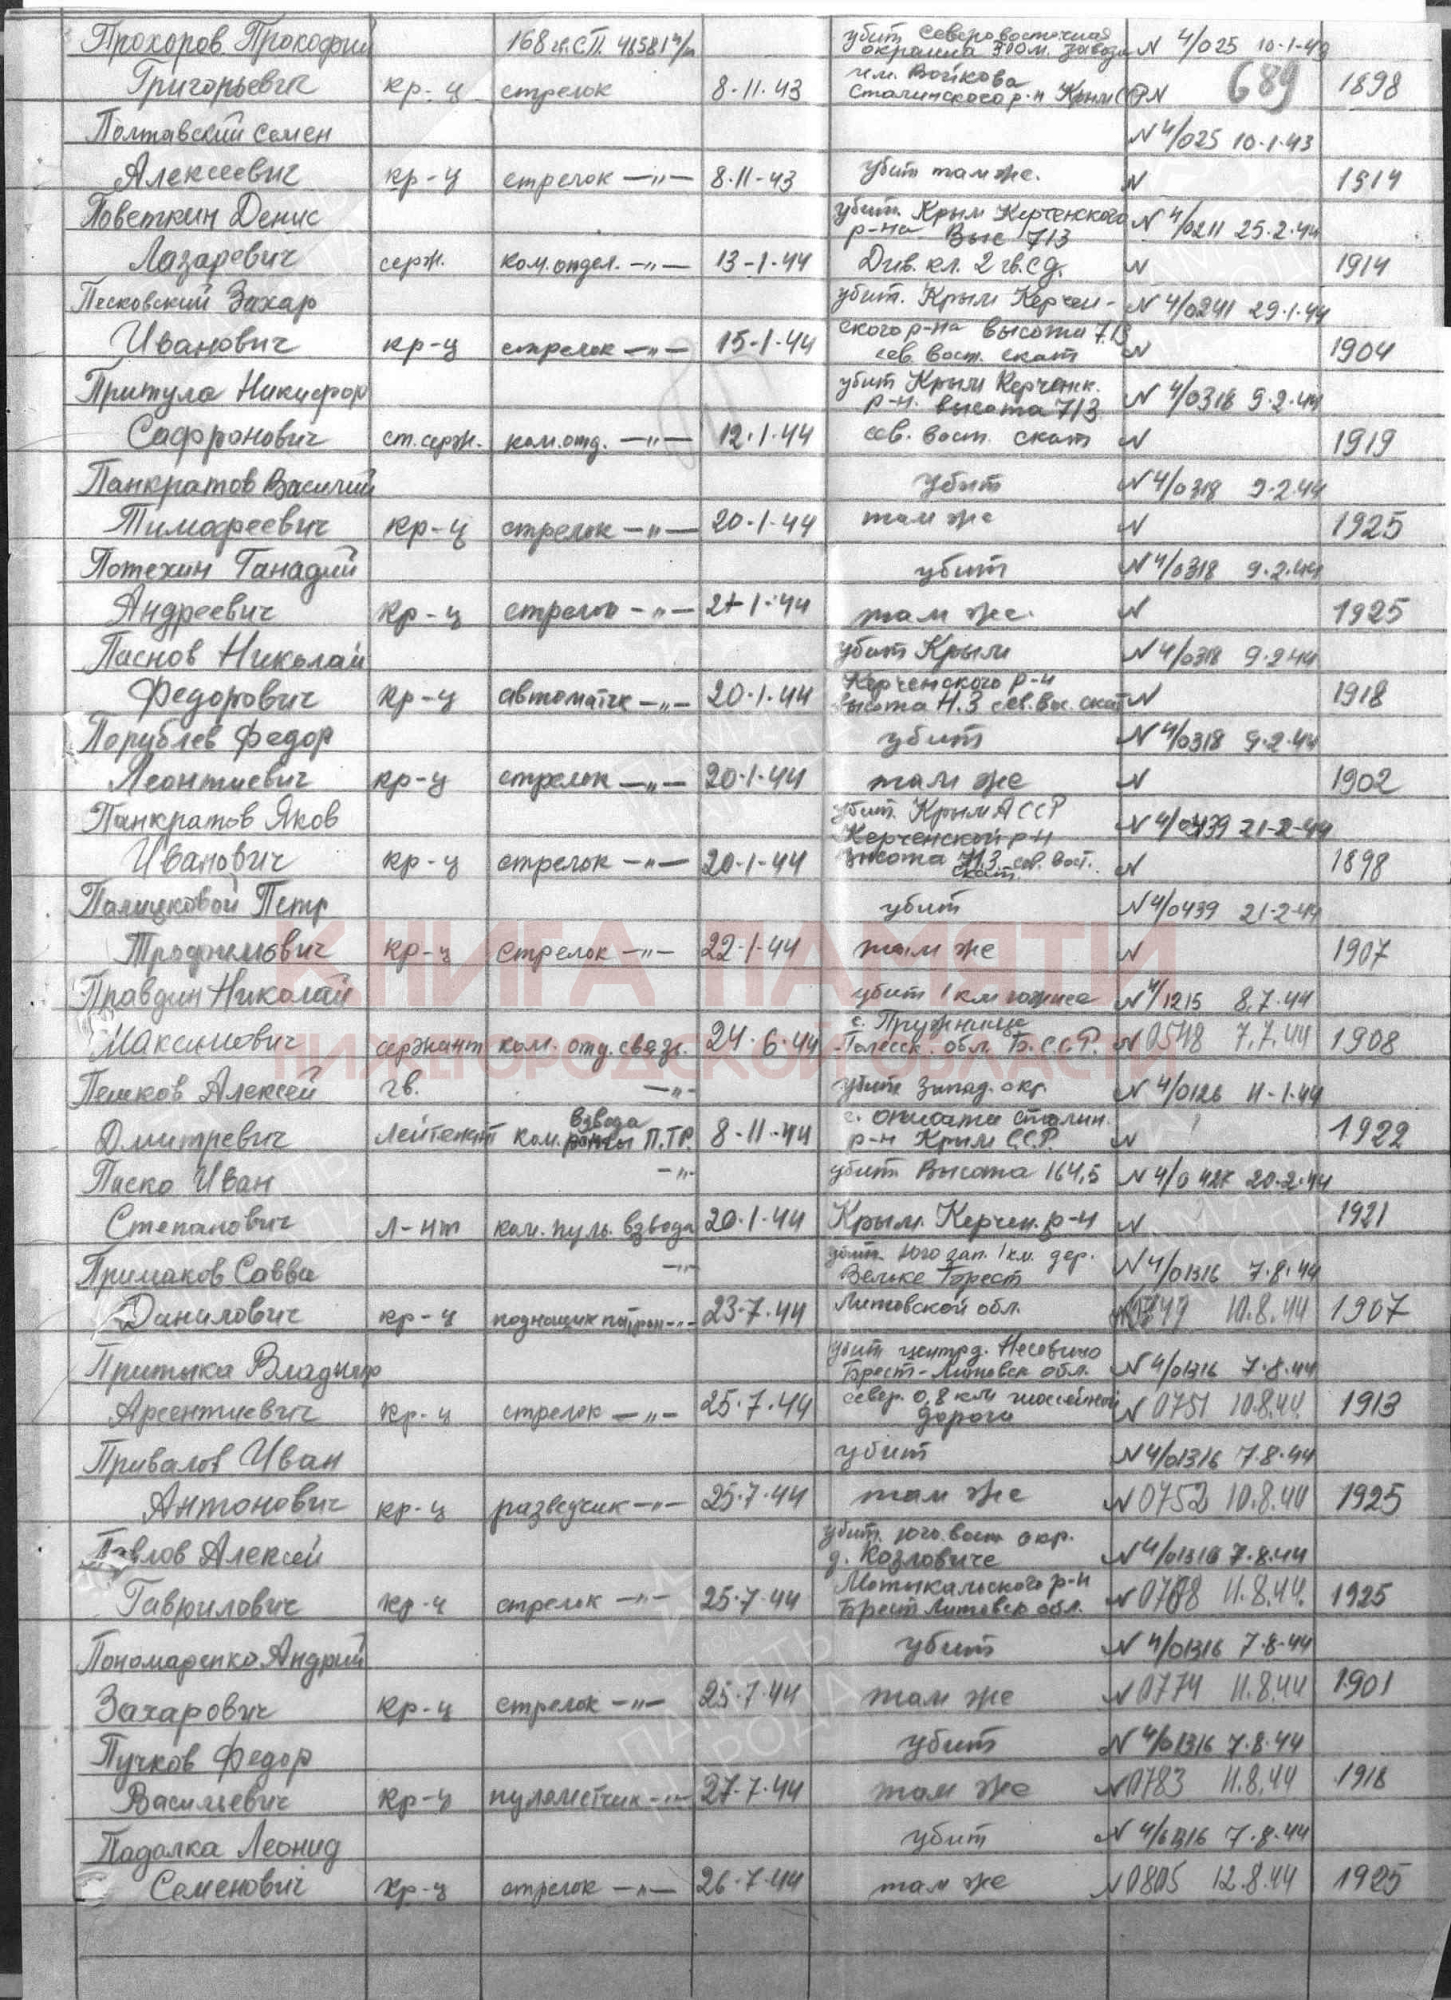 Прохоров Прокофий 168 гв.СП. 46581 п/п убит Северовосточная окраина 300 м. завода N 4/025 10-1-43
Григорьевич кр-ц стрелок 8-11-43 им. Войкова Сталинского р-н Крым ССР N 689 1898
Полтавский Семен N 4/025 10-1-43
Алексеевич кр-ц стрелок —"— 8-11-43 убит там же. N 1914
Поветкин Денис убит. Крым Керченского р-на Выс 71,3 N 4/0211 25-2-44
Лазаревич серж. ком. отдел. —"— 13-1-44 Див. кл. 2 гв.сд. N 1914
Песковский Захар убит. Крым Керчен- N 4/0241 29-1-44
Иванович кр-ц стрелок —"— 15-1-44 ского р-на высота 71,3 сев. вост. скат N 1904
Притула Никифор убит Крым Керченск. р-н. высота 71,3 N 4/0318 9-2-44
Сафронович ст. серж. ком. отд. —"— 12-1-44 сев. вост. скат N 1919
Панкратов Василий убит N 4/0318 9-2-44
Тимофеевич кр-ц стрелок —"— 20-1-44 там же N 1925
Потехин Ганадий убит N 4/0318 9-2-44
Андреевич кр-ц стрелок —"— 21-1-44 там же. N 1925
Паснов Николай убит Крым N 4/0318 9-2-44
Федорович кр-ц автоматчк —"— 20-1-44 Керченского р-н высота 71.3 сев. вос. скат N 1918
Порублев Федор убит N 4/0318 9-2-44
Леонтиевич кр-ц стрелок —"— 20-1-44 там же N 1902
Панкратов Яков убит. Крым АССР Керченской р-н N 4/0439 21-2-44
Иванович кр-ц стрелок —"— 20-1-44 высота 71,3 сев. вост. скат. N 1898
Палицковой Петр убит N 4/0439 21-2-44
КНИГА ПАМЯТИ
Трофимович кр-ц стрелок —"— 22-1-44 там же N 1907
Правдин Николай убит 1 км южнее N 4/1215 8.7.44
НИЖЕГОРОДСКОЙ ОБЛАСТИ
Максимович сержант ком. отд. связи. 24-6-44 с. Пружнище Полесск. обл. Б.С.С.Р. N 0548 7.7.44 1908
Пешков Алексей гв. —"— убит запад. окр. N 4/0126 11-1-44
Дмитревич лейтенант ком. взвода роты П.Т.Р. 8-11-44 Сталин. р-н Крым С.С.Р. N 1922
Паско Иван —"— убит Высота 164,5 N 4/0427 20-2-44
Степанович л-нт ком. пуль. взвода 20-1-44 Крым. Керчен. р-н N 1921
Примаков Савва —"— убит юго зап. 1 км. дер. Вельке Брест N 4/01316 7-8-44
Данилович кр-ц подносщик патрон —"— 23-7-44 Литовской обл. 10.8.44 1907
Притыка Владимир убит центр д. Несовичо Брест-Литовск обл. N 4/01316 7-8-44
Арсентиевич кр-ц стрелок —"— 25-7-44 север. 0,8 км шоссейной дороги N 0751 10.8.44. 1913
Привалов Иван убит N 4/01316 7-8-44
Антонович кр-ц разведчик —"— 25-7-44 там же N 0752 10.8.44 1925
Павлов Алексей убит юго вост окр. д. Козловиче N 4/01316 7-8-44
Гаврилович кр-ц стрелок —"— 25-7-44 Мотыкальского р-н Брест Литовск обл. N 0768 11.8.44. 1925
Пономаренко Андрий убит N 4/01316 7-8-44
Захарович кр-ц стрелок —"— 25-7-44 там же N 0774 11.8.44 1901
Пучков Федор убит N 4/01316 7-8-44
Васильевич кр-ц пулеметчик —"— 27-7-44 там же N 0783 11.8.44 1918
Падалка Леонид убит N 4/01316 7-8-44
Семенович кр-ц стрелок —"— 26-7-44 там же N 0805 12.8.44 1925